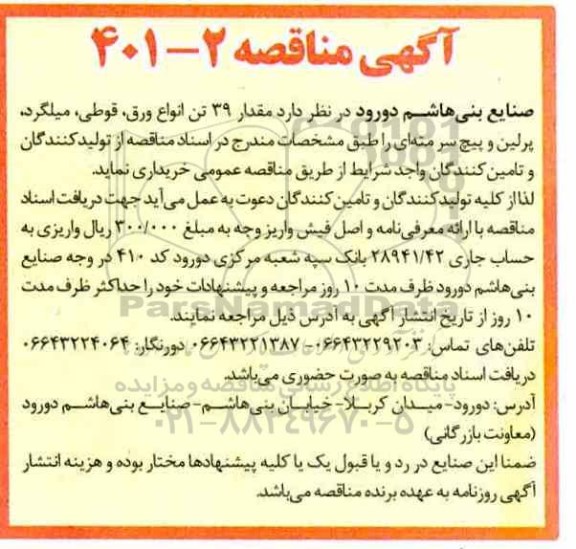 آگهی مناقصه ۲-۴۰۱
صنایع بنی‌هاشم دورود در نظر دارد مقدار ۳۹ تن انواع ورق، قوطی، میلگرد،
پرلین و پیچ سر مته‌ای را طبق مشخصات مندرج در اسناد مناقصه از تولیدکنندگان
و تامین‌کنندگان واجد شرایط از طریق مناقصه عمومی خریداری نماید.
لذا از کلیه تولیدکنندگان و تامین‌کنندگان دعوت به عمل می‌آید جهت دریافت اسناد
مناقصه با ارائه معرفی‌نامه و اصل فیش واریز وجه به مبلغ ۳۰۰/۰۰۰ ریال واریزی به
حساب جاری ۲۸۹۴۱/۴۲ بانک سپه شعبه مرکزی دورود کد ۴۱۰ در وجه صنایع
بنی‌هاشم دورود ظرف مدت ۱۰ روز مراجعه و پیشنهادات خود را حداکثر ظرف مدت
۱۰ روز از تاریخ انتشار آگهی به آدرس ذیل مراجعه نمایند.
ParsNamadData
تلفن‌های تماس: ۰۶۶۴۳۲۲۹۲۰۳- ۰۶۶۴۳۲۲۱۳۸۷ دورنگار: ۰۶۶۴۳۲۲۴۰۶۴
دریافت اسناد مناقصه به صورت حضوری می‌باشد.
پایگاه اطلاع رسانی مناقصه و مزایده
آدرس: دورود- میدان کربلا- خیابان بنی‌هاشم- صنایع بنی‌هاشم دورود
۰۲۱-۸۸۳۴۹۶۷۰-۵
(معاونت بازرگانی)
ضمنا این صنایع در رد و یا قبول یک یا کلیه پیشنهادها مختار بوده و هزینه انتشار
آگهی روزنامه به عهده برنده مناقصه می‌باشد.